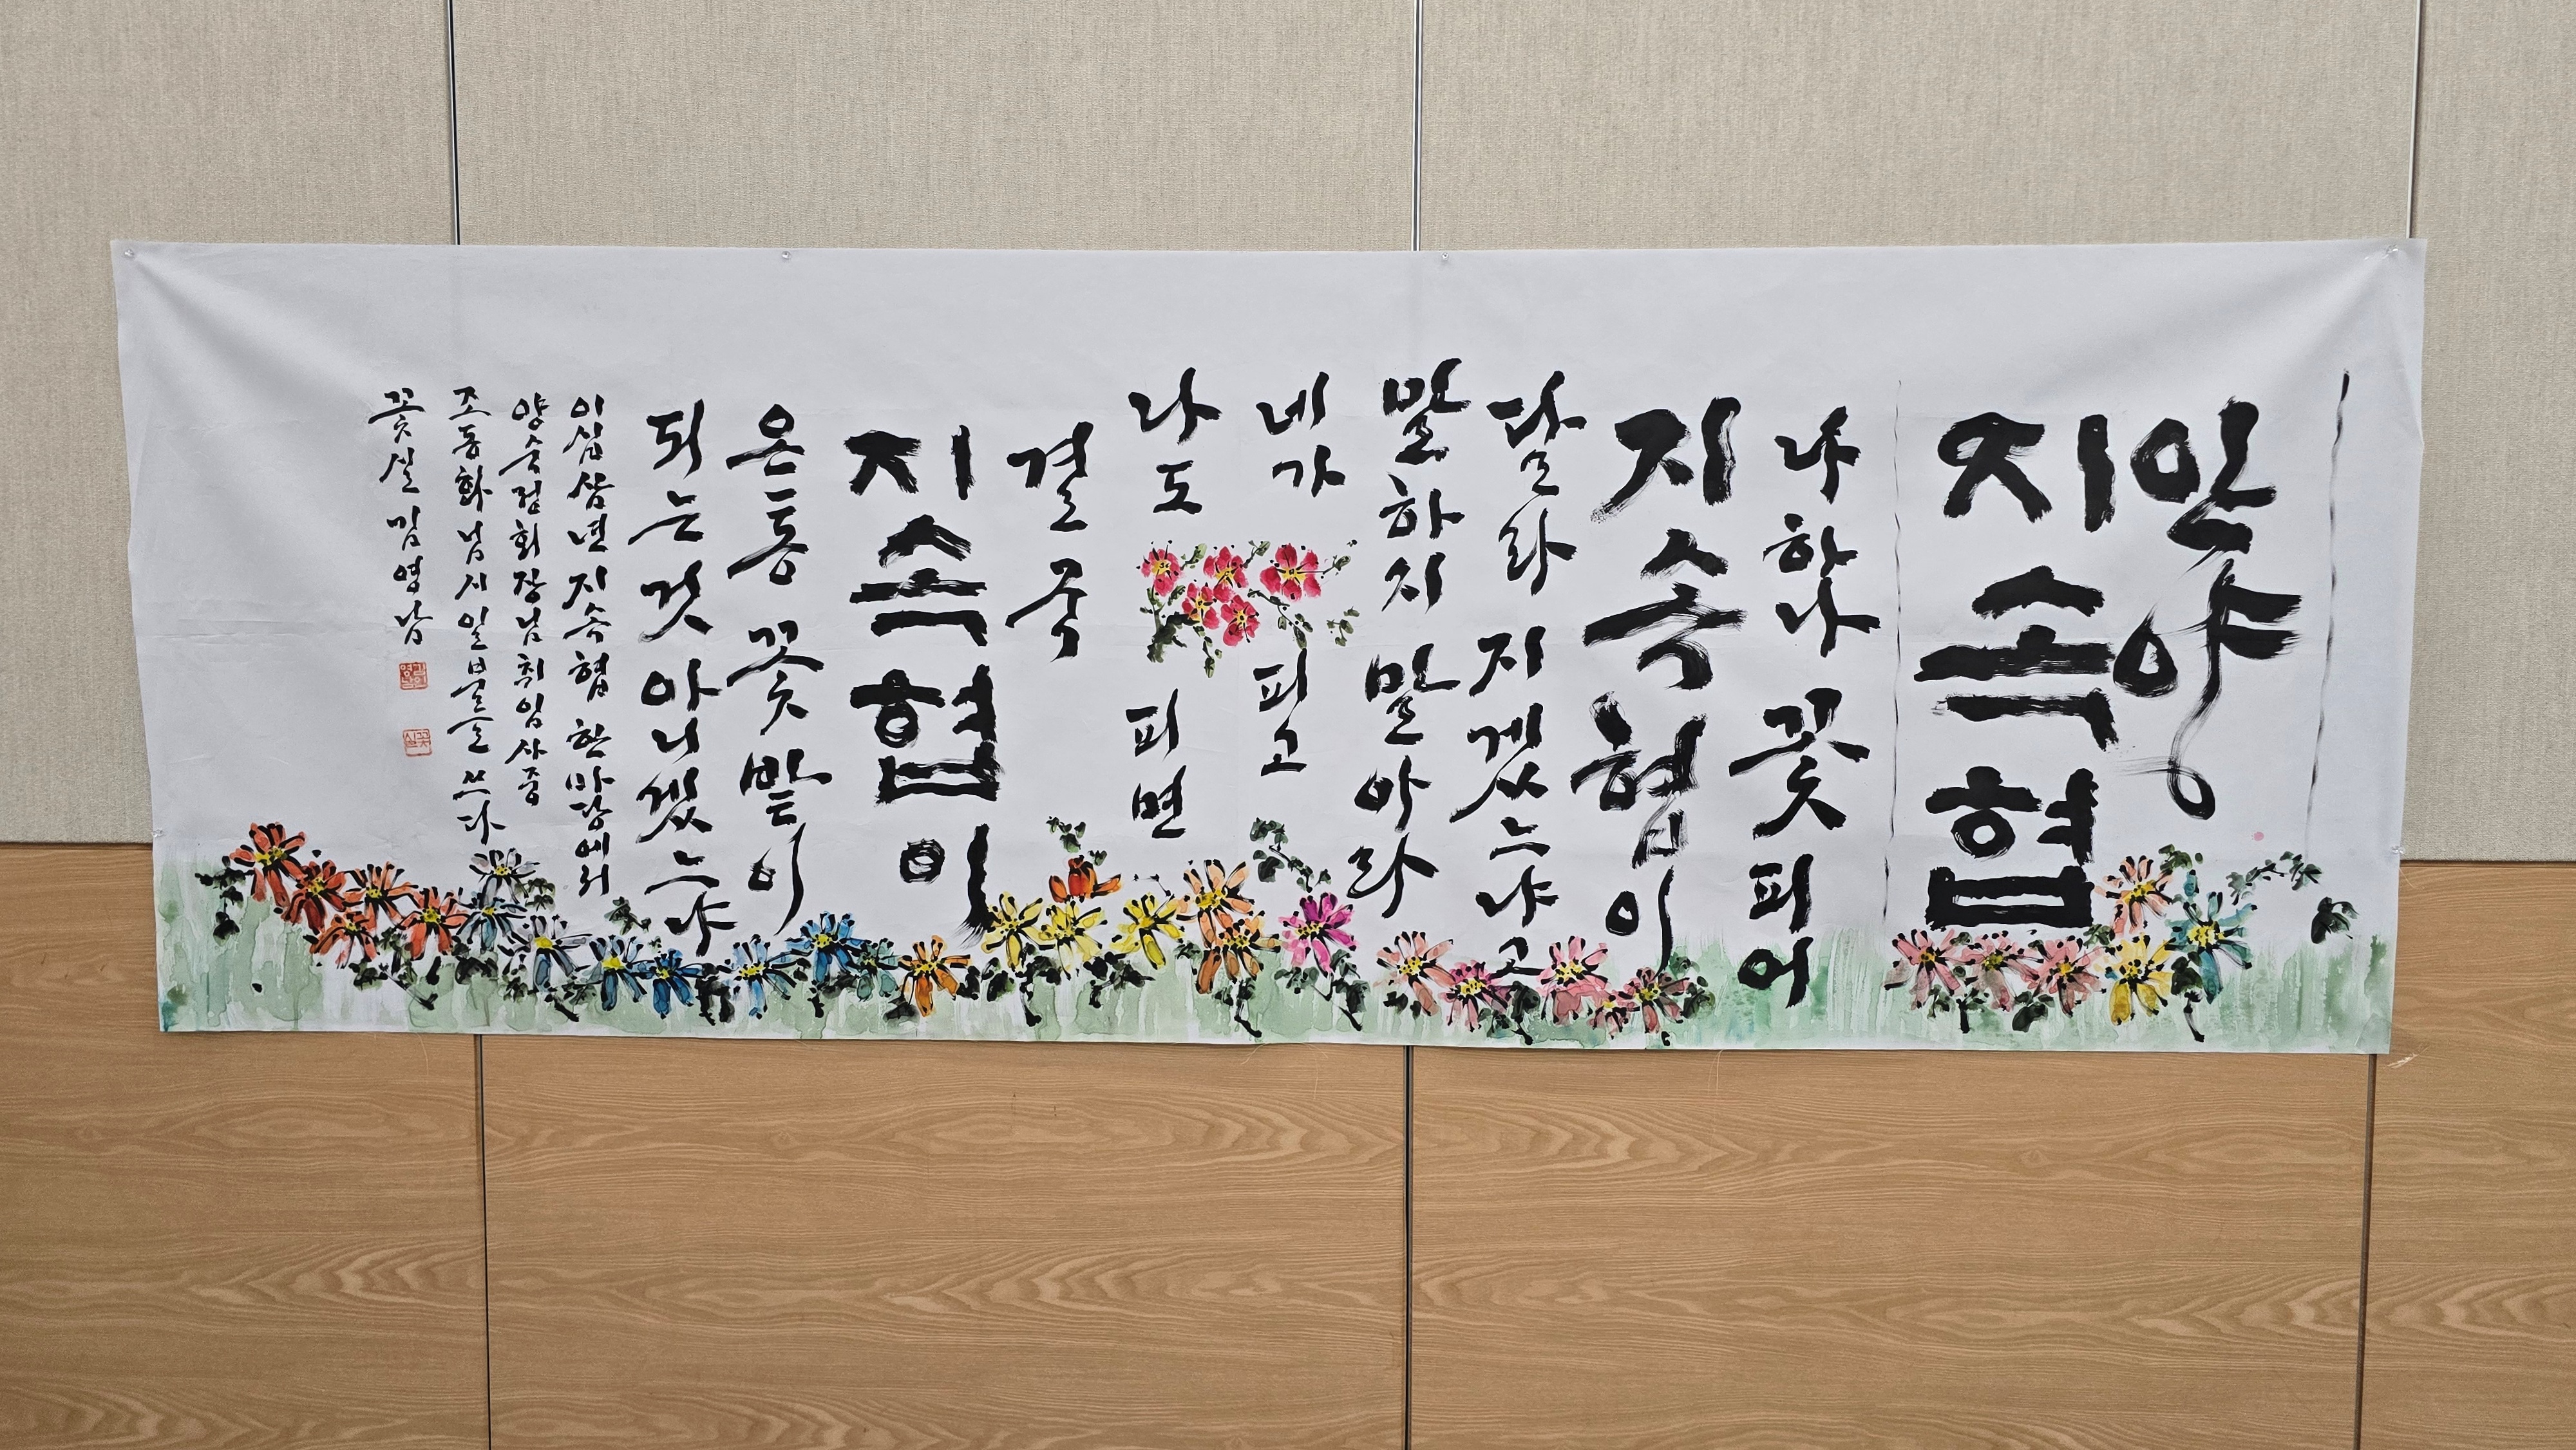 안양
지속협
나 하나 꽃피어
지속협이
달라 지겠느냐고
말하지 말아라
네가 피고
나도 피면
결국
지속협이
온통 꽃밭이
되는것 아니겠느냐
이십삼년 지속협 한마당에서
양숙정회장님 취임사중
조동화님 시 일부를 쓰다
꽃실 김영남
꽃실